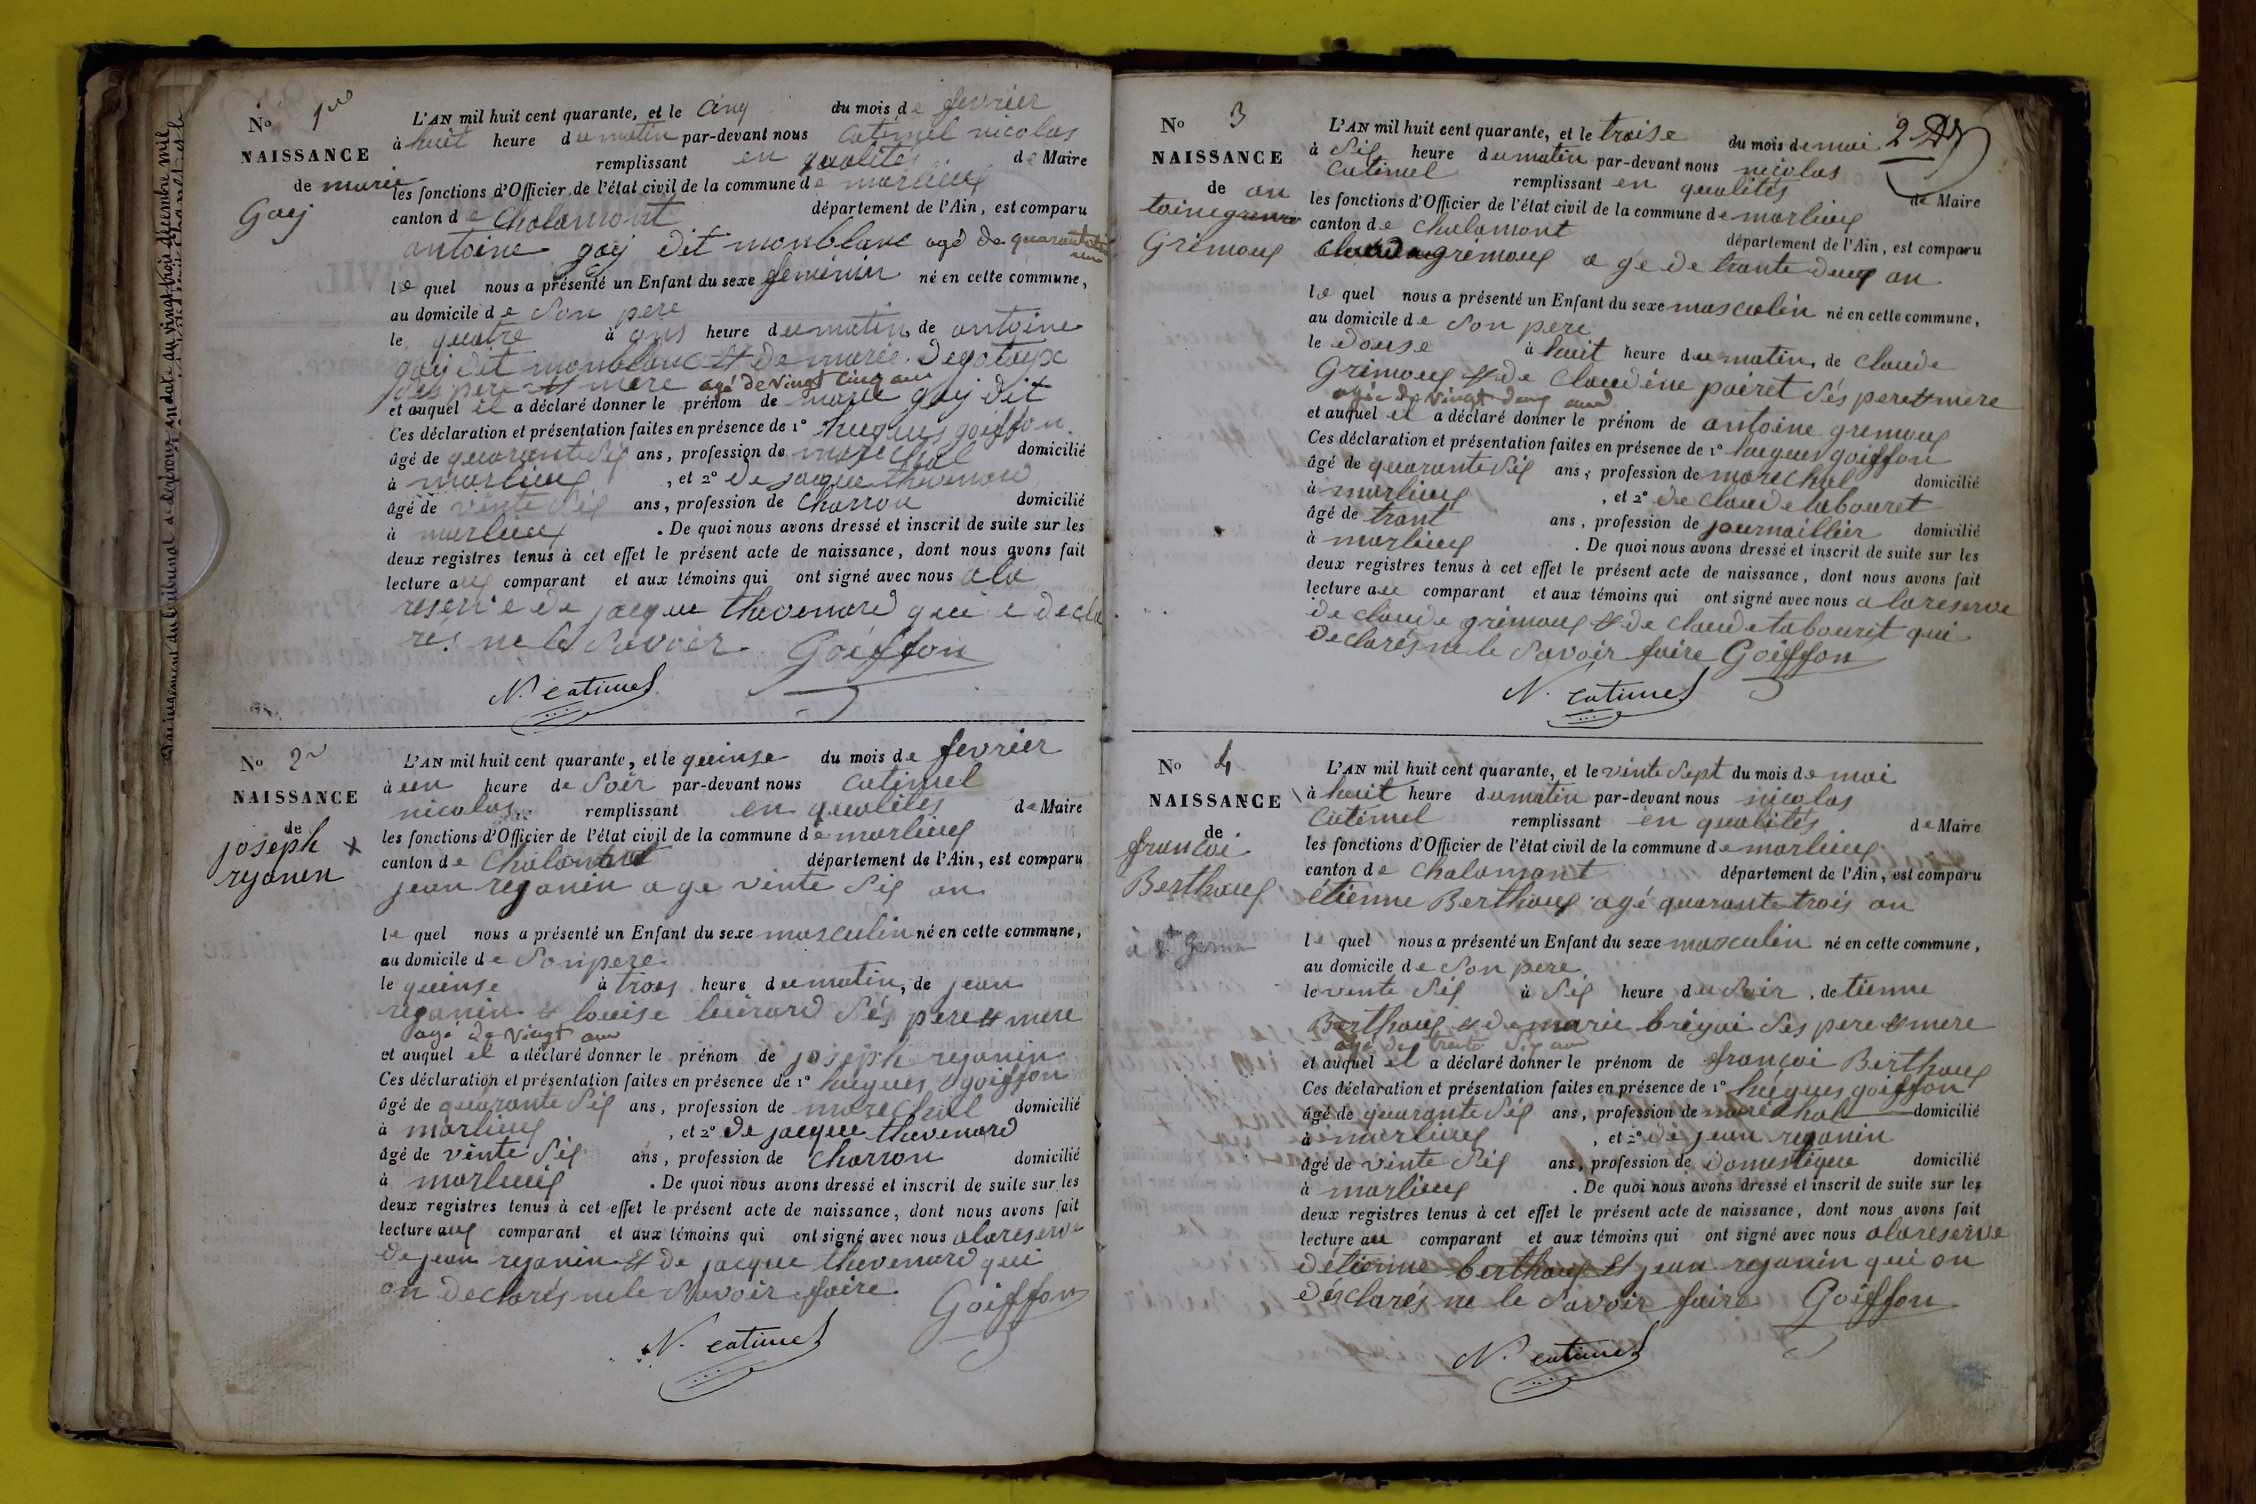 No 1re
NAISSANCE
de marie
Gay
L'AN mil huit cent quarante, et le cinq du mois de fevrier
à huit heure du matin par-devant nous catimel nicolas
remplissant en qualités de Maire
les fonctions d'Officier de l'état civil de la commune de marlieux
canton de Chalamont département de l'Ain, est comparu
antoine gay dit monblanc agé de quarante
le quel nous a présenté un Enfant du sexe feminin né en cette commune,
au domicile de Son pere
le quatre à heure du matin, de antoine
gay dit monblanc et de marie
Ses pere et mere agé de vingt cinq ans
et auquel il a déclaré donner le prénom de marie gay dit
Ces déclaration et présentation faites en présence de 1° hugues goiffon
âgé de quarante Six ans, profession de marechal domicilié
à marlieux , et 2° de jacque thevenard
âgé de vinte Six ans, profession de Charron domicilié
à marlieux . De quoi nous avons dressé et inscrit de suite sur les
deux registres tenus à cet effet le présent acte de naissance, dont nous avons fait
lecture aux comparant et aux témoins qui ont signé avec nous a la
reserve de jacque thevenard qui a décla
rés ne le Savoir Goiffon
N. catimel
No 2
NAISSANCE
de
joseph x
rejanin
L'AN mil huit cent quarante, et le quinse du mois de fevrier
à un heure de Soir par-devant nous catimel
nicolas remplissant en qualités de Maire
les fonctions d'Officier de l'état civil de la commune de marlieux
canton de Chalamont département de l'Ain, est comparu
jean rejanin age vinte Six an
le quel nous a présenté un Enfant du sexe masculin né en cette commune,
au domicile de Son pere
le quinse à trois heure du matin, de jean
rejanin et louise Ses pere et mere
agé de vingt ans
et auquel il a déclaré donner le prénom de joseph rejanin
Ces déclaration et présentation faites en présence de 1° hugues goiffon
âgé de quarante Six ans, profession de marechal domicilié
à marlieux , et 2° de jacque thevenard
âgé de vinte Six ans, profession de Charron domicilié
à marlieux . De quoi nous avons dressé et inscrit de suite sur les
deux registres tenus à cet effet le présent acte de naissance, dont nous avons fait
lecture aux comparant et aux témoins qui ont signé avec nous alareserve
de jean rejanin et de jacque thevenard qui
on declarés ne le Savoir faire Goiffon
N. catimel
No 3
NAISSANCE
de an
toine
Grimoux
2
L'AN mil huit cent quarante, et le troise du mois de mai
à Six heure du matin par-devant nous nicolas
catimel remplissant en qualités de Maire
les fonctions d'Officier de l'état civil de la commune de marlieux
canton de Chalamont département de l'Ain, est comparu
claude grimoux age de trante deux an
le quel nous a présenté un Enfant du sexe masculin né en cette commune,
au domicile de Son pere
le douse à huit heure du matin, de claude
Grimoux et de Claudine poiret Sés pere et mere
agée de vingt deux ans
et auquel il a déclaré donner le prénom de antoine grimoux
Ces déclaration et présentation faites en présence de 1° hugues goiffon
âgé de quarante Six ans, profession de marechal domicilié
à marlieux , et 2° de claude tabouret
âgé de trant ans, profession de journaillier domicilié
à marlieux . De quoi nous avons dressé et inscrit de suite sur les
deux registres tenus à cet effet le présent acte de naissance, dont nous avons fait
lecture au comparant et aux témoins qui ont signé avec nous alareserve
de claude grimoux et de claude tabouret qui
declarés ne le Savoir faire Goiffon
N. catimel
No 4
NAISSANCE
de
françoi
Berthoux
à St Germ
L'AN mil huit cent quarante, et le vinte Sept du mois de mai
à huit heure du matin par-devant nous nicolas
catimel remplissant en qualités de Maire
les fonctions d'Officier de l'état civil de la commune de marlieux
canton de Chalamont département de l'Ain, est comparu
étienne Berthoux agé quarante trois an
le quel nous a présenté un Enfant du sexe masculin né en cette commune,
au domicile de Son pere
le vente Six à Six heure du Soir, de tienne
Berthoux et de marie Ses pere et mere
agé de trente Six ans
et auquel il a déclaré donner le prénom de françoi Berthoux
Ces déclaration et présentation faites en présence de 1° hugues goiffon
âgé de quarante Six ans, profession de marechal domicilié
à marlieux , et 2° de jean rejanin
âgé de vinte Six ans, profession de domestique domicilié
à marlieux . De quoi nous avons dressé et inscrit de suite sur les
deux registres tenus à cet effet le présent acte de naissance, dont nous avons fait
lecture au comparant et aux témoins qui ont signé avec nous alareserve
détienne berthoux et jean rejanin qui on
désclarés ne le Savoir faire Goiffon
N. catimel